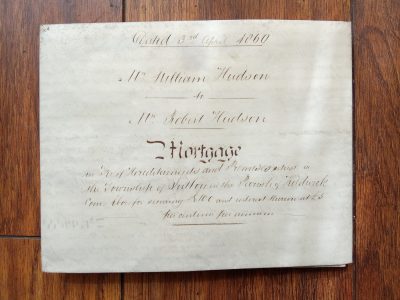 Dated 3rd April 1869
Mr William Hudson
to
Mr Robert Hudson
Mortgage
of Hereditaments and Premises situate in
the Township of Sutton in the Parish of Kildwick
for securing £100 and interest thereon at £5
per centum per annum